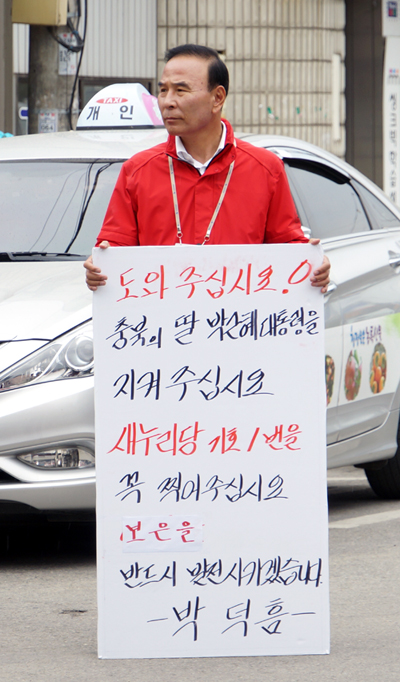 TAXI
개인
도와 주십시요!
충북의 딸 박근혜대통령을
지켜 주십시요
새누리당 기호1번을
꼭 찍어주십시요
보은을
반드시 발전시키겠습니다.
-박덕흠-